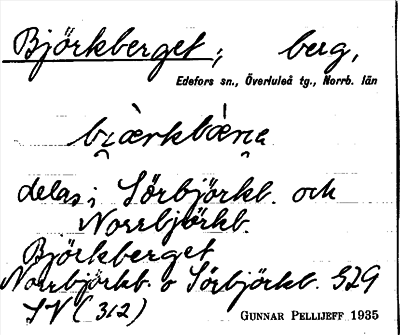 Björkberget; berg,
Edefors sn., Överluleå tg., Norrb. län
bi̯æ̀rkbæ̀r̯ia
delas i Sörbjörkb. och
Norrbjörkb.
Björkberget
Norrbjörkb. o Sörbjörkb. GJG
JV (312)
GUNNAR PELLIJEFF 1935